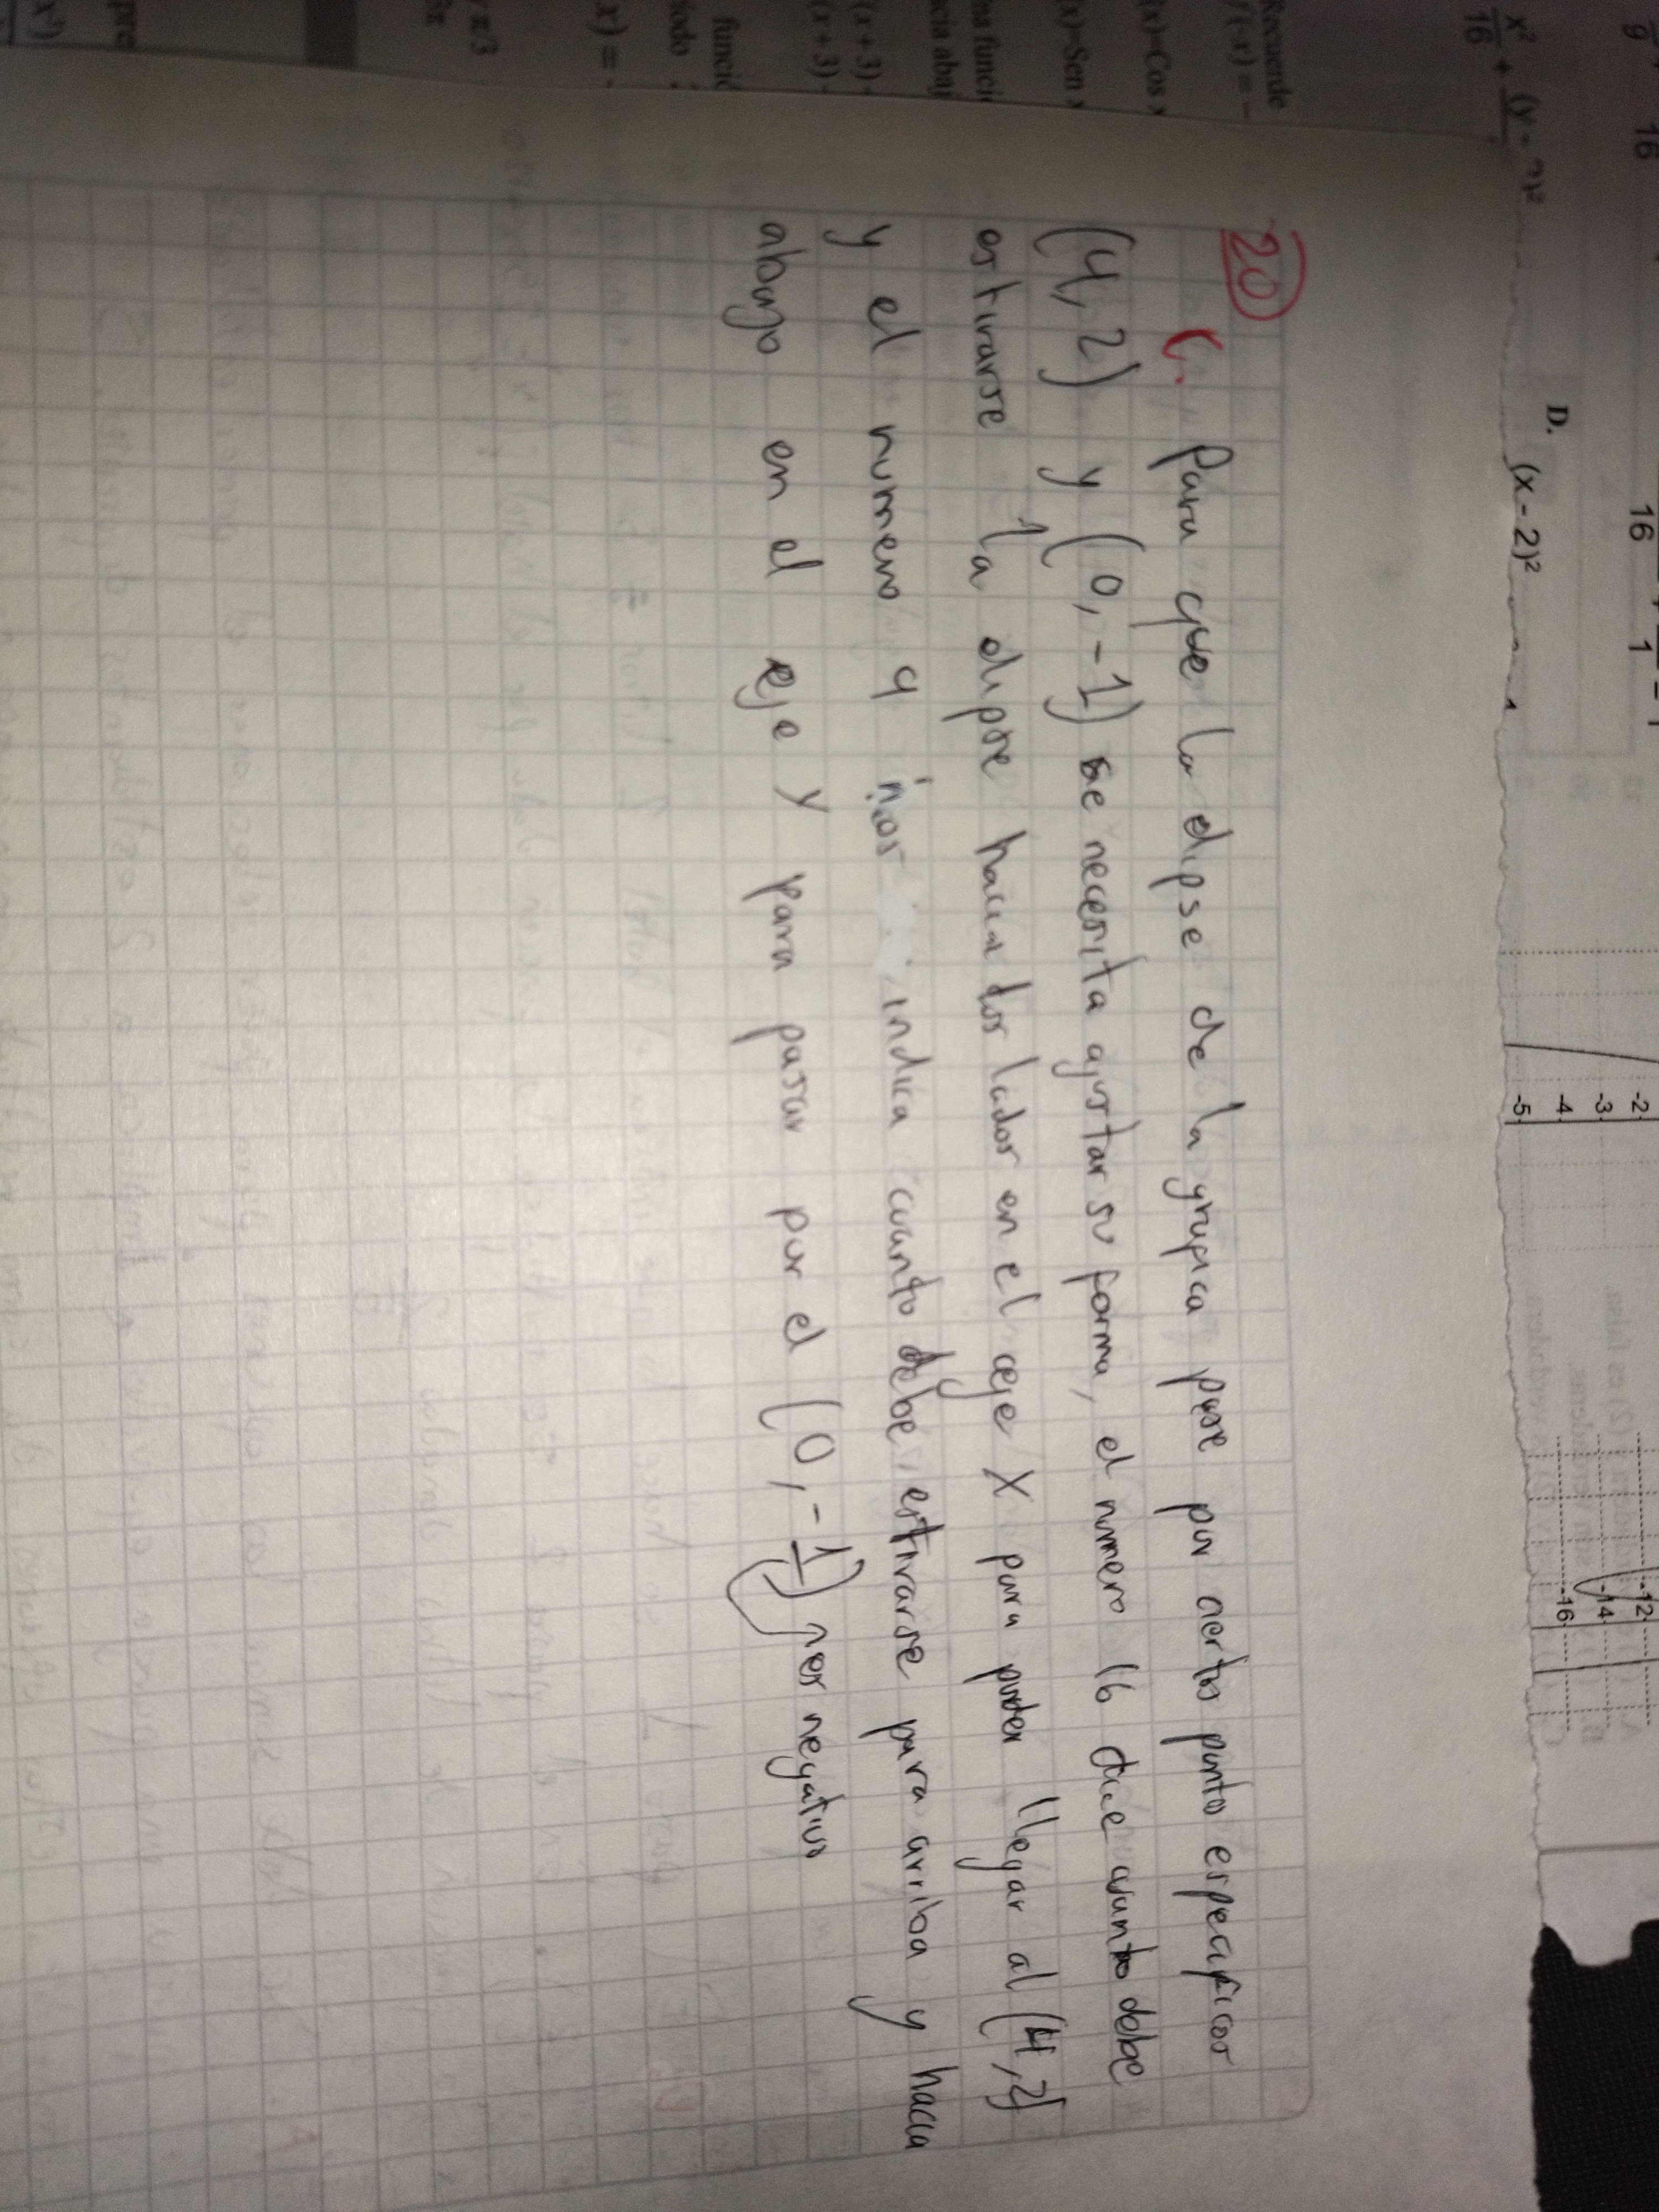 9 16
16 1
x²/16 + (y - 2)²
D. (x - 2)²
-5 -4 -3 -2
-16 -14 -12
Recuerde
f(-x) = -
(x)=Cos x
(x)=Sen x
na funci
cia abaj
(x+3)
(x+3)
funci
íodo
x) = -
π/3
20
C. Para que la elipse de la grafica pase por ciertos puntos especificos
(4, 2) y (0, -1) se necesita ajustar su forma, el numero 16 dice cuanto debe
estirarse la elipse hacia los lados en el eje X para poder llegar al (4, 2)
y el numero 9 nos indica cuanto debe estirarse para arriba y hacia
abajo en el eje Y para pasar por el (0, -1) es negativo